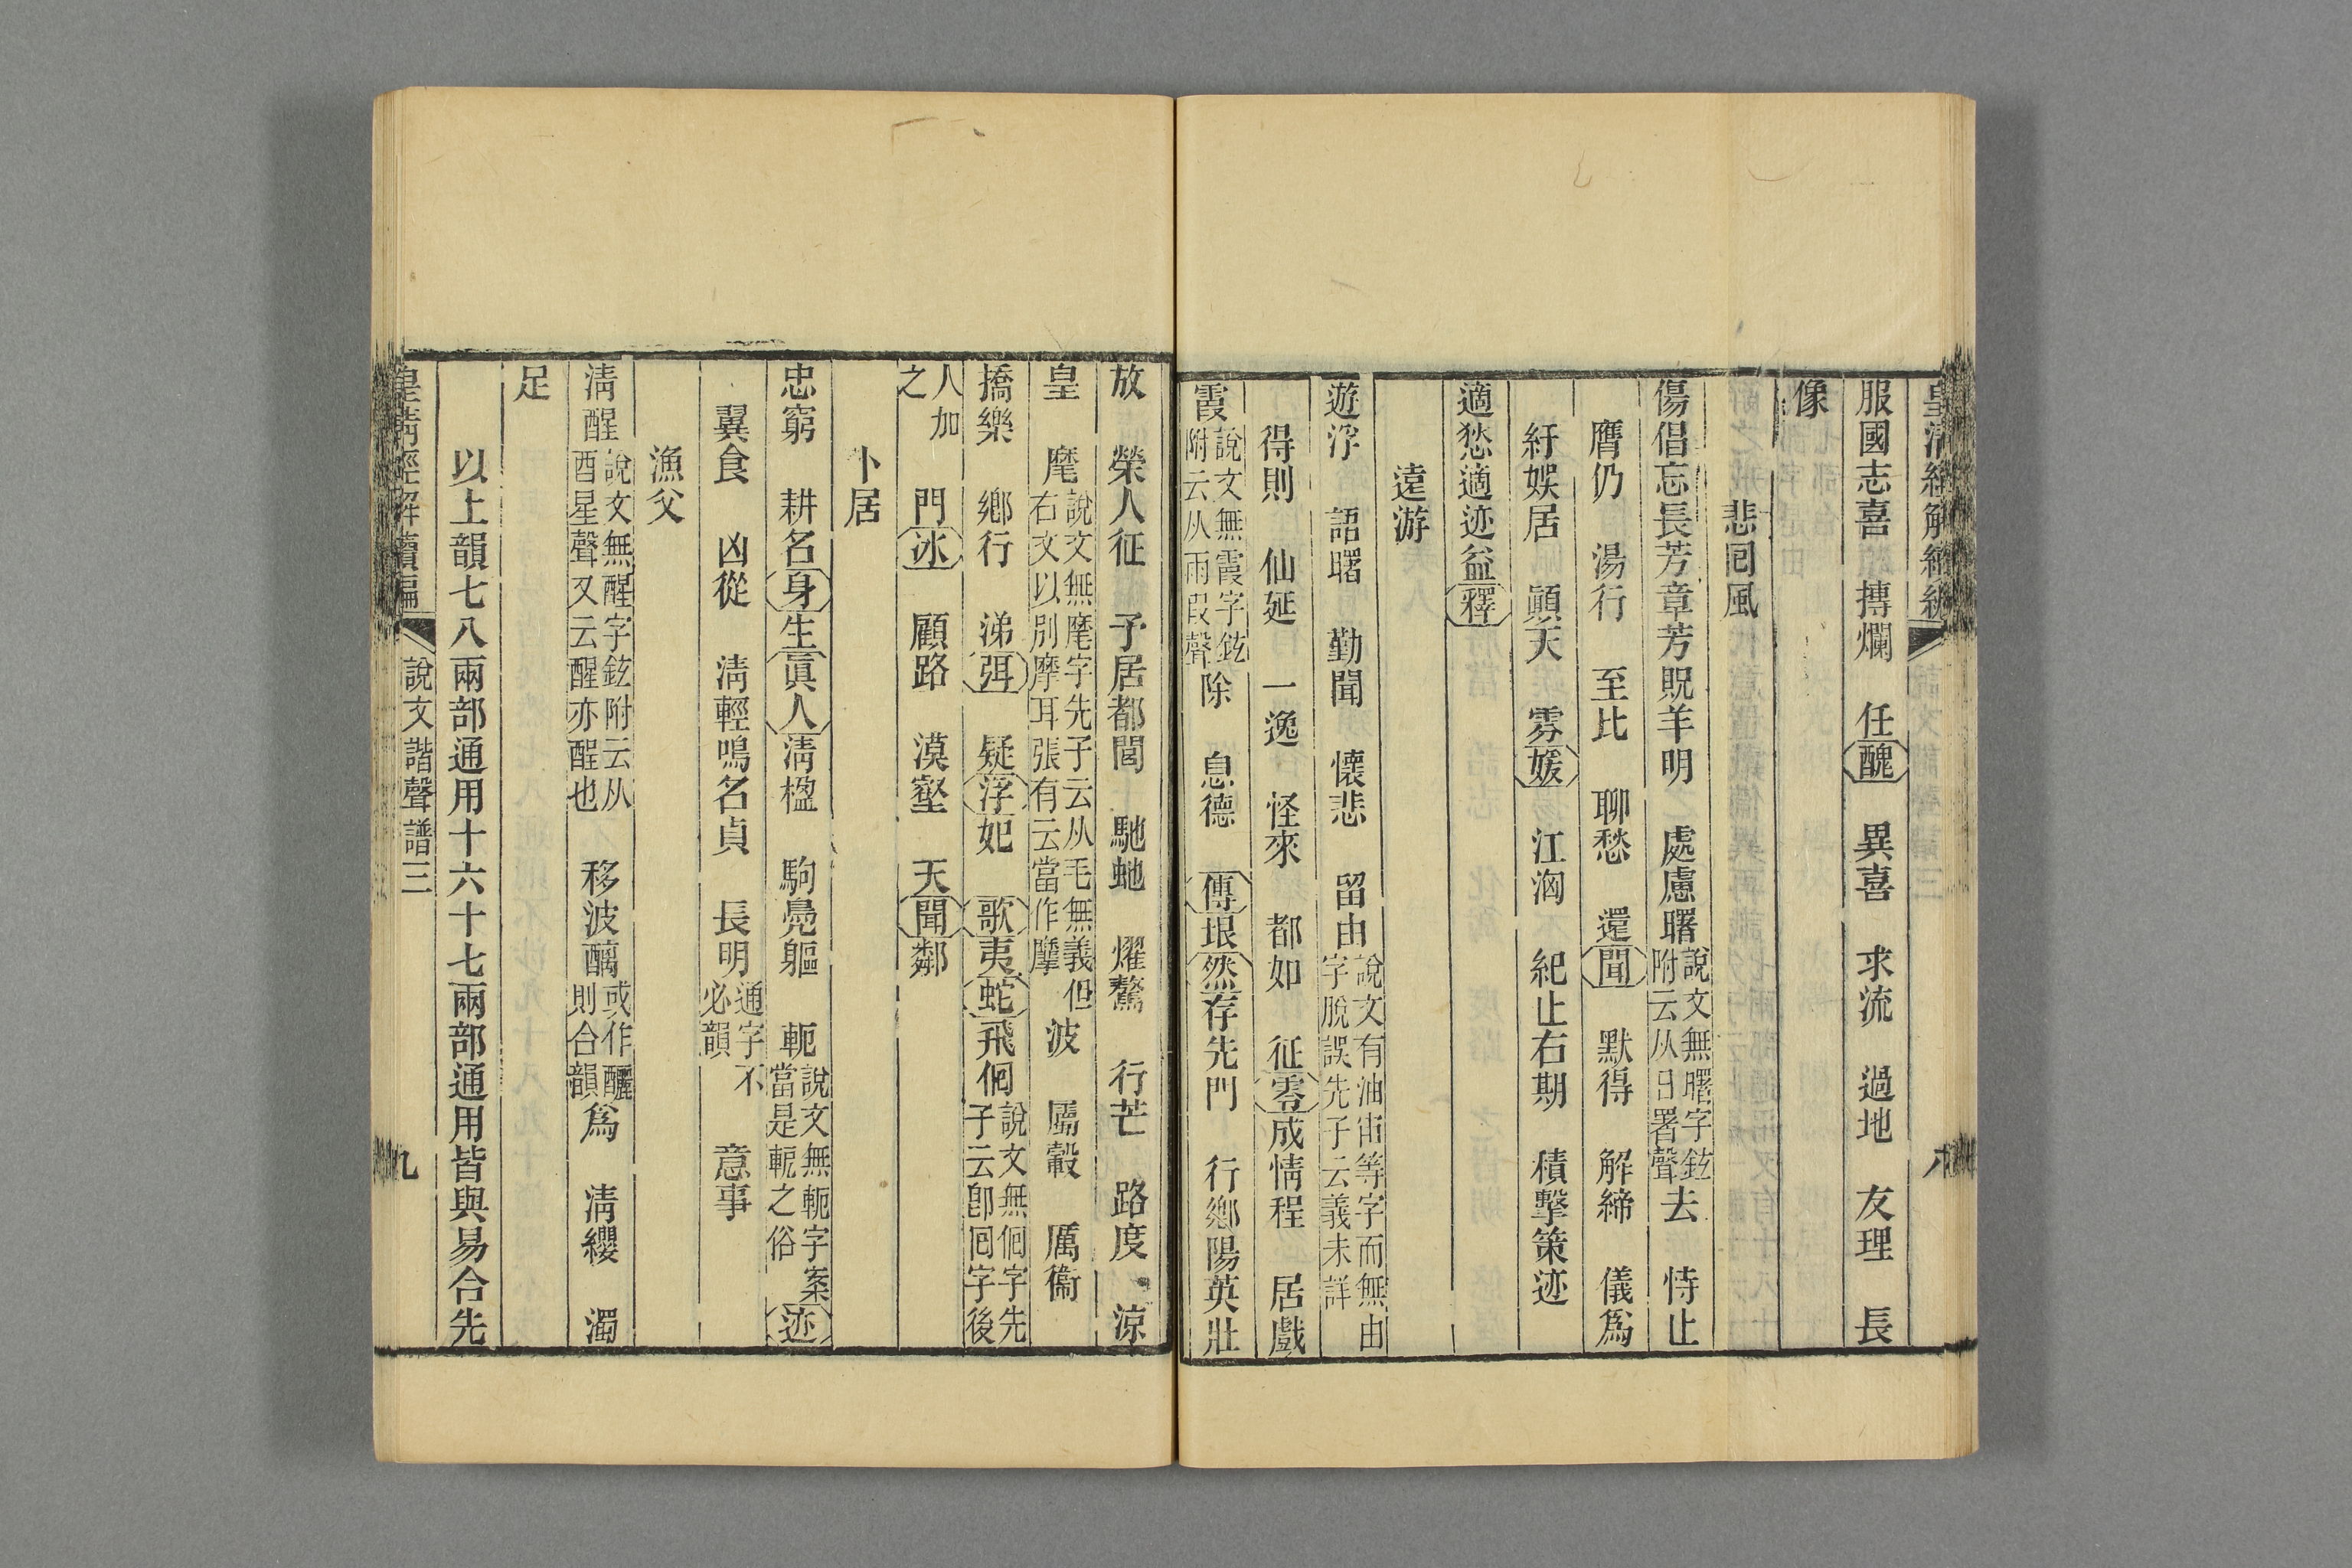 皇清經解續編 八
服國志喜 摶爛 任醜 異喜 求流 過地 友理 長
像
悲囘風
傷倡忘長芳章芳貺羊明 處慮曙說文無曙字鉉附云从日署聲去 恃止
膺仍 湯行 至比 聊愁 還聞 默得 解締 儀爲
紆娛居 顚天 雰媛 江洶 紀止右期 積擊策迹
適愁適迹益釋
遠游
遊浮 語曙 勤聞 懷悲 留由說文有油宙等字而無由字脫誤先子云義未詳
得則 仙延 一逸 怪來 都如 征零成情程 居戲
霞說文無霞字鉉附云从雨叚聲除 息德 傳垠然存先門 行鄉陽英壯
放 榮人征 予居都閭 馳虵 燿驁 行芒 路度 涼
皇 麾說文無麾字先子云从毛無義但右文以別摩耳張有云當作摩 波 屬轂 厲衞
撟樂 鄉行 涕弭 疑浮妃 歌夷蛇飛佪說文無佪字先子云卽囘字後
人加之 門冰 顧路 漠壑 天聞鄰
卜居
忠窮 耕名身生眞人淸楹 駒鳧軀 軛說文無軛字案當是軶之俗 迹
翼食 凶從 淸輕鳴名貞 長明通字不必韻 意事
漁父
淸醒說文無醒字鉉附云从酉星聲又云醒亦酲也 移波醨或作釃則合韻爲 淸纓 濁
足
以上韻七八兩部通用十六十七兩部通用皆與易合先
皇淸經解續編 說文諧聲譜三 九